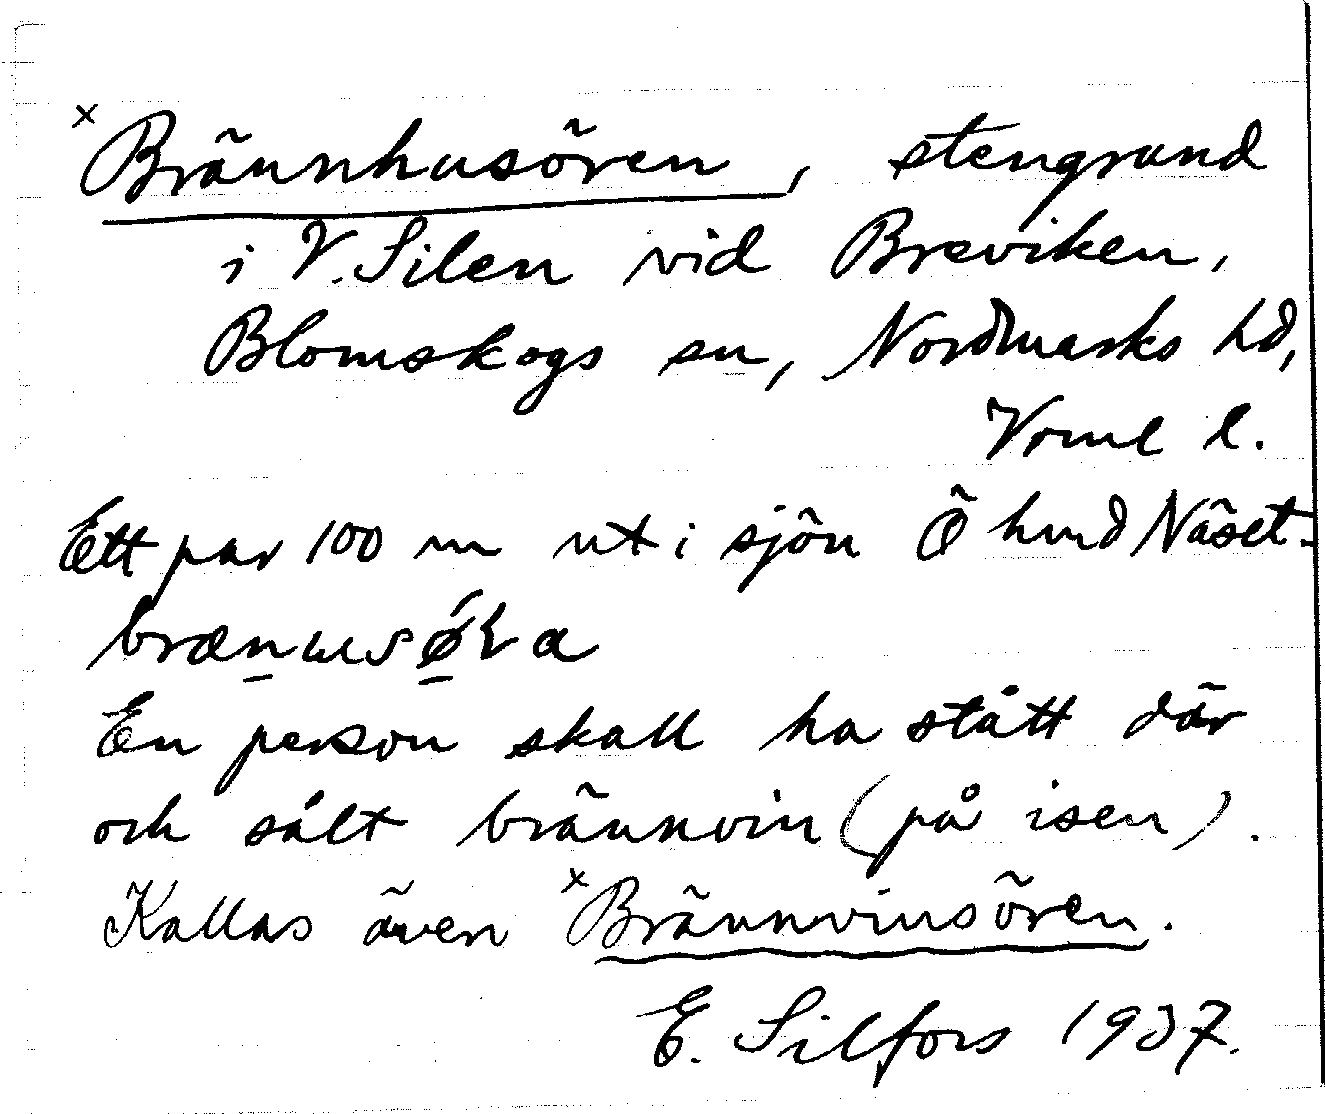 ×Brännhusören, stengrund
i V. Silen vid Breviken,
Blomskogs sn, Nordmarks hd,
Verml l.
Ett par 100 m ut i sjön Ö hmd Näset.
En person skall ha stått där
och sålt brännvin (på isen).
Kallas även ×Brännvinsören.
E. Silfors 1937.